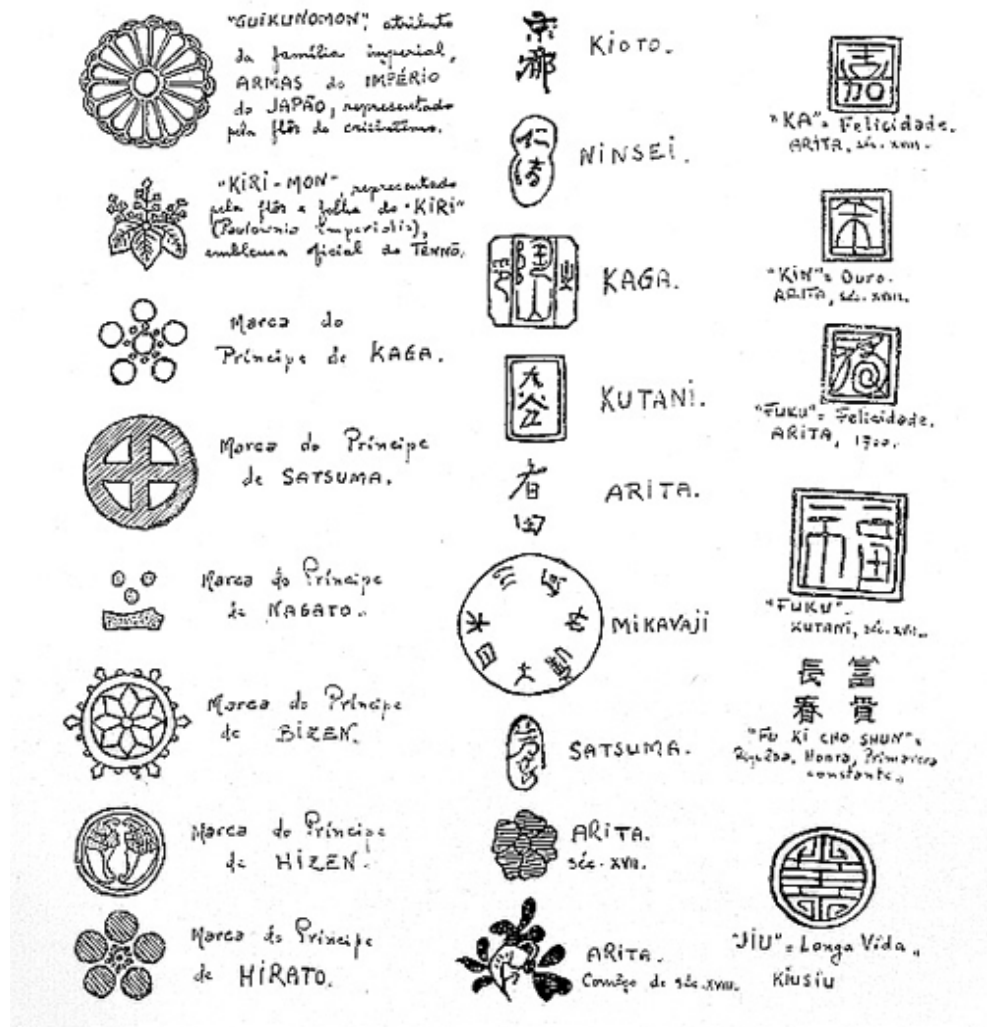 "GUIKUNOMON", atributo
da família imperial,
ARMAS do IMPÉRIO
do JAPÃO, representado
pela flôr do crisântemo.
"KIRI-MON", representado
pela flôr e folha do "KIRI"
(Paulownia Imperialis),
emblema oficial do TENNŌ.
Marca do
Príncipe de KAGA.
Marca do Príncipe
de SATSUMA.
Marca do Príncipe
de NAGATO.
Marca do Príncipe
de BIZEN.
Marca do Príncipe
de HIZEN.
Marca do Príncipe
de HIRATO.
京
都
KIOTO.
仁
清
NINSEI.
KAGA.
九
谷
KUTANI.
田
ARITA.
MIKAVAJI
SATSUMA.
ARITA.
séc. XVII.
ARITA.
Comêço do séc. XVIII.
嘉
"KA" = Felicidade.
ARITA, séc. XVIII.
金
"KIN" = Ouro.
ARITA, séc. XVIII.
福
"FUKU" = Felicidade.
ARITA, 1700.
福
"FUKU".
KUTANI, séc. XVII.
長 富
春 貴
"FU KI CHO SHUN" =
Riquêsa, Honra, Primavera
constante.
"JIU" = Longa Vida.
KIUSIU